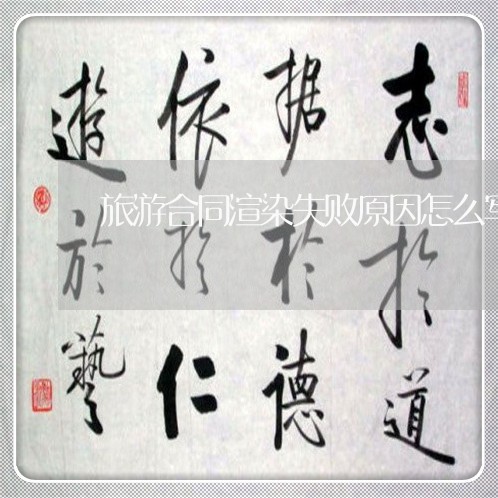 志於道
据於德
依於仁
遊於藝
旅游合同渲染失败原因怎么写